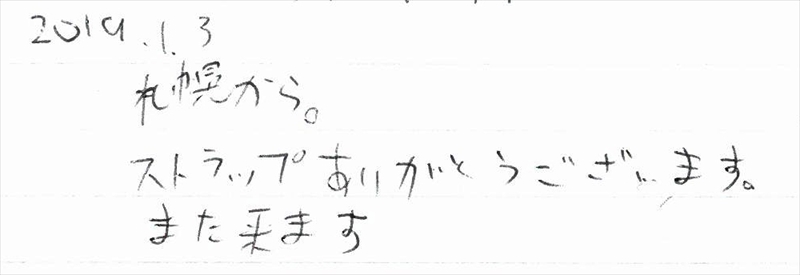 2019.1.3
札幌から。
ストラップありがとうございます。
また来ます